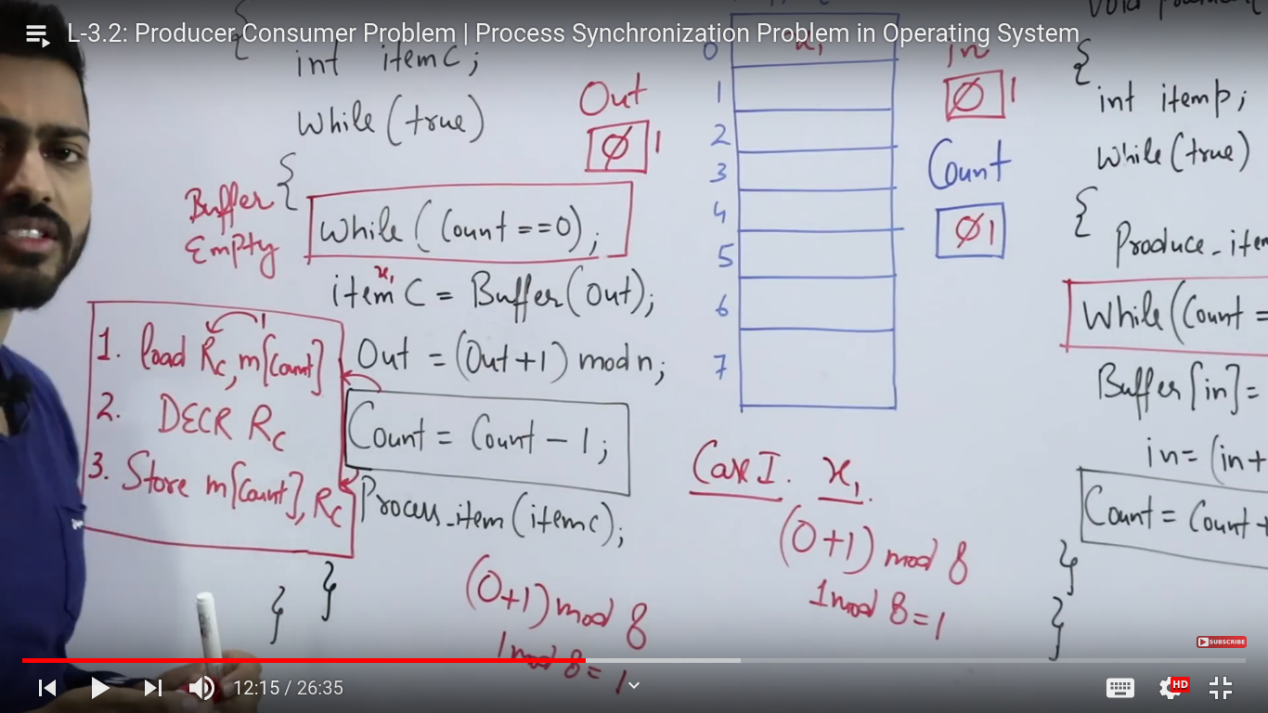 L-3.2: Producer Consumer Problem | Process Synchronization Problem in Operating System
{
int itemC;
while(true)
{
Buffer
Empty
while (Count == 0);
x1
itemC = Buffer(out);
Out = (Out+1) mod n;
Count = Count - 1;
Process_item(itemc);
}
}
1
1. load Rc, m[Count]
2. DECR Rc
3. Store m[Count], Rc
(0+1) mod 8
1 mod 8 = 1
Out
0 1
0 x1
1
2
3
4
5
6
7
in
0 1
Count
0 1
Case I. x1.
(0+1) mod 8
1 mod 8 = 1
{
int itemp;
while(true)
{
Produce_item
While(Count =
Buffer[in]=
in= (in+
Count = Count +
}
}
SUBSCRIBE
12:15 / 26:35
HD